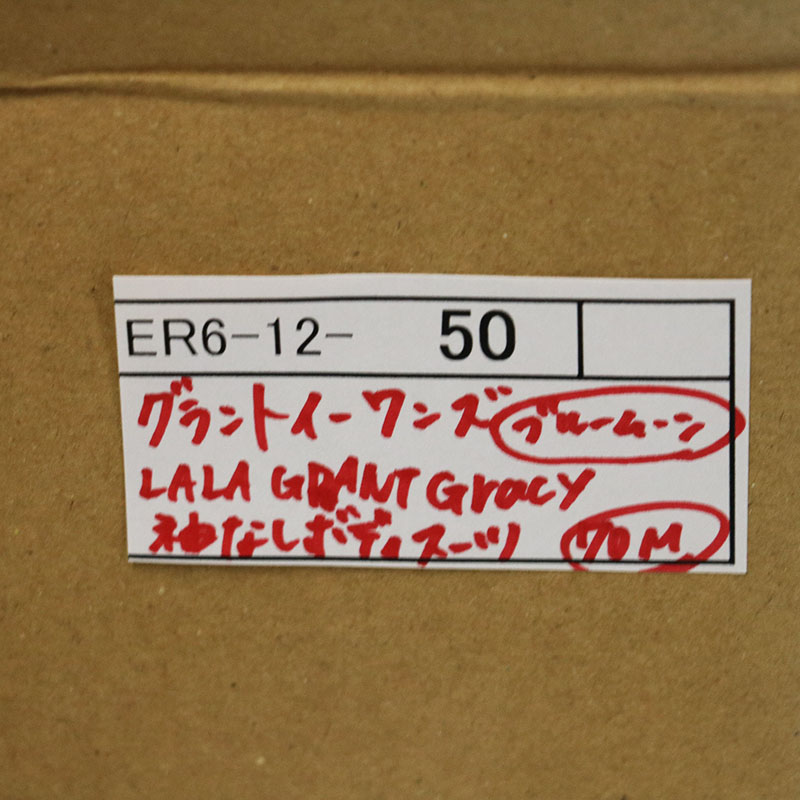 ER6-12- 50
グラントイーワンズ ブルームーン
LALA GRANT Gracy
袖なしボディスーツ 70M